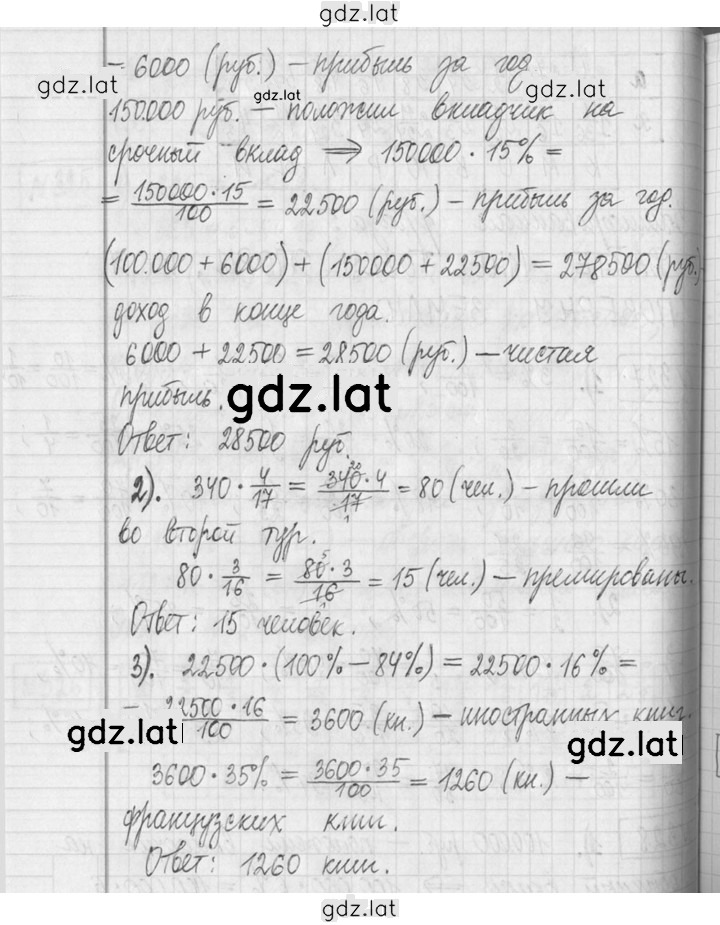 gdz.lat
– 6000 (руб.) – прибыль за год.
gdz.lat gdz.lat gdz.lat
150.000 руб. – положил вкладчик на
срочный вклад ⟹ 150000 · 15% =
= 150000·15/100 = 22500 (руб.) – прибыль за год.
(100.000 + 6000) + (150000 + 22500) = 278500 (руб.)
доход в конце года.
6000 + 22500 = 28500 (руб.) – чистая
прибыль.
gdz.lat
Ответ: 28500 руб.
2). 340 · 4/17 = 340·4/17 = 80 (чел.) – прошли
во второй тур.
80 · 3/16 = 80·3/16 = 15 (чел.) – премированы.
Ответ: 15 человек.
3). 22500 · (100% – 84%) = 22500 · 16% =
= 22500·16/100 = 3600 (кн.) – иностранных книг.
gdz.lat gdz.lat
3600 · 35% = 3600·35/100 = 1260 (кн.) –
французских книг.
Ответ: 1260 книг.
gdz.lat